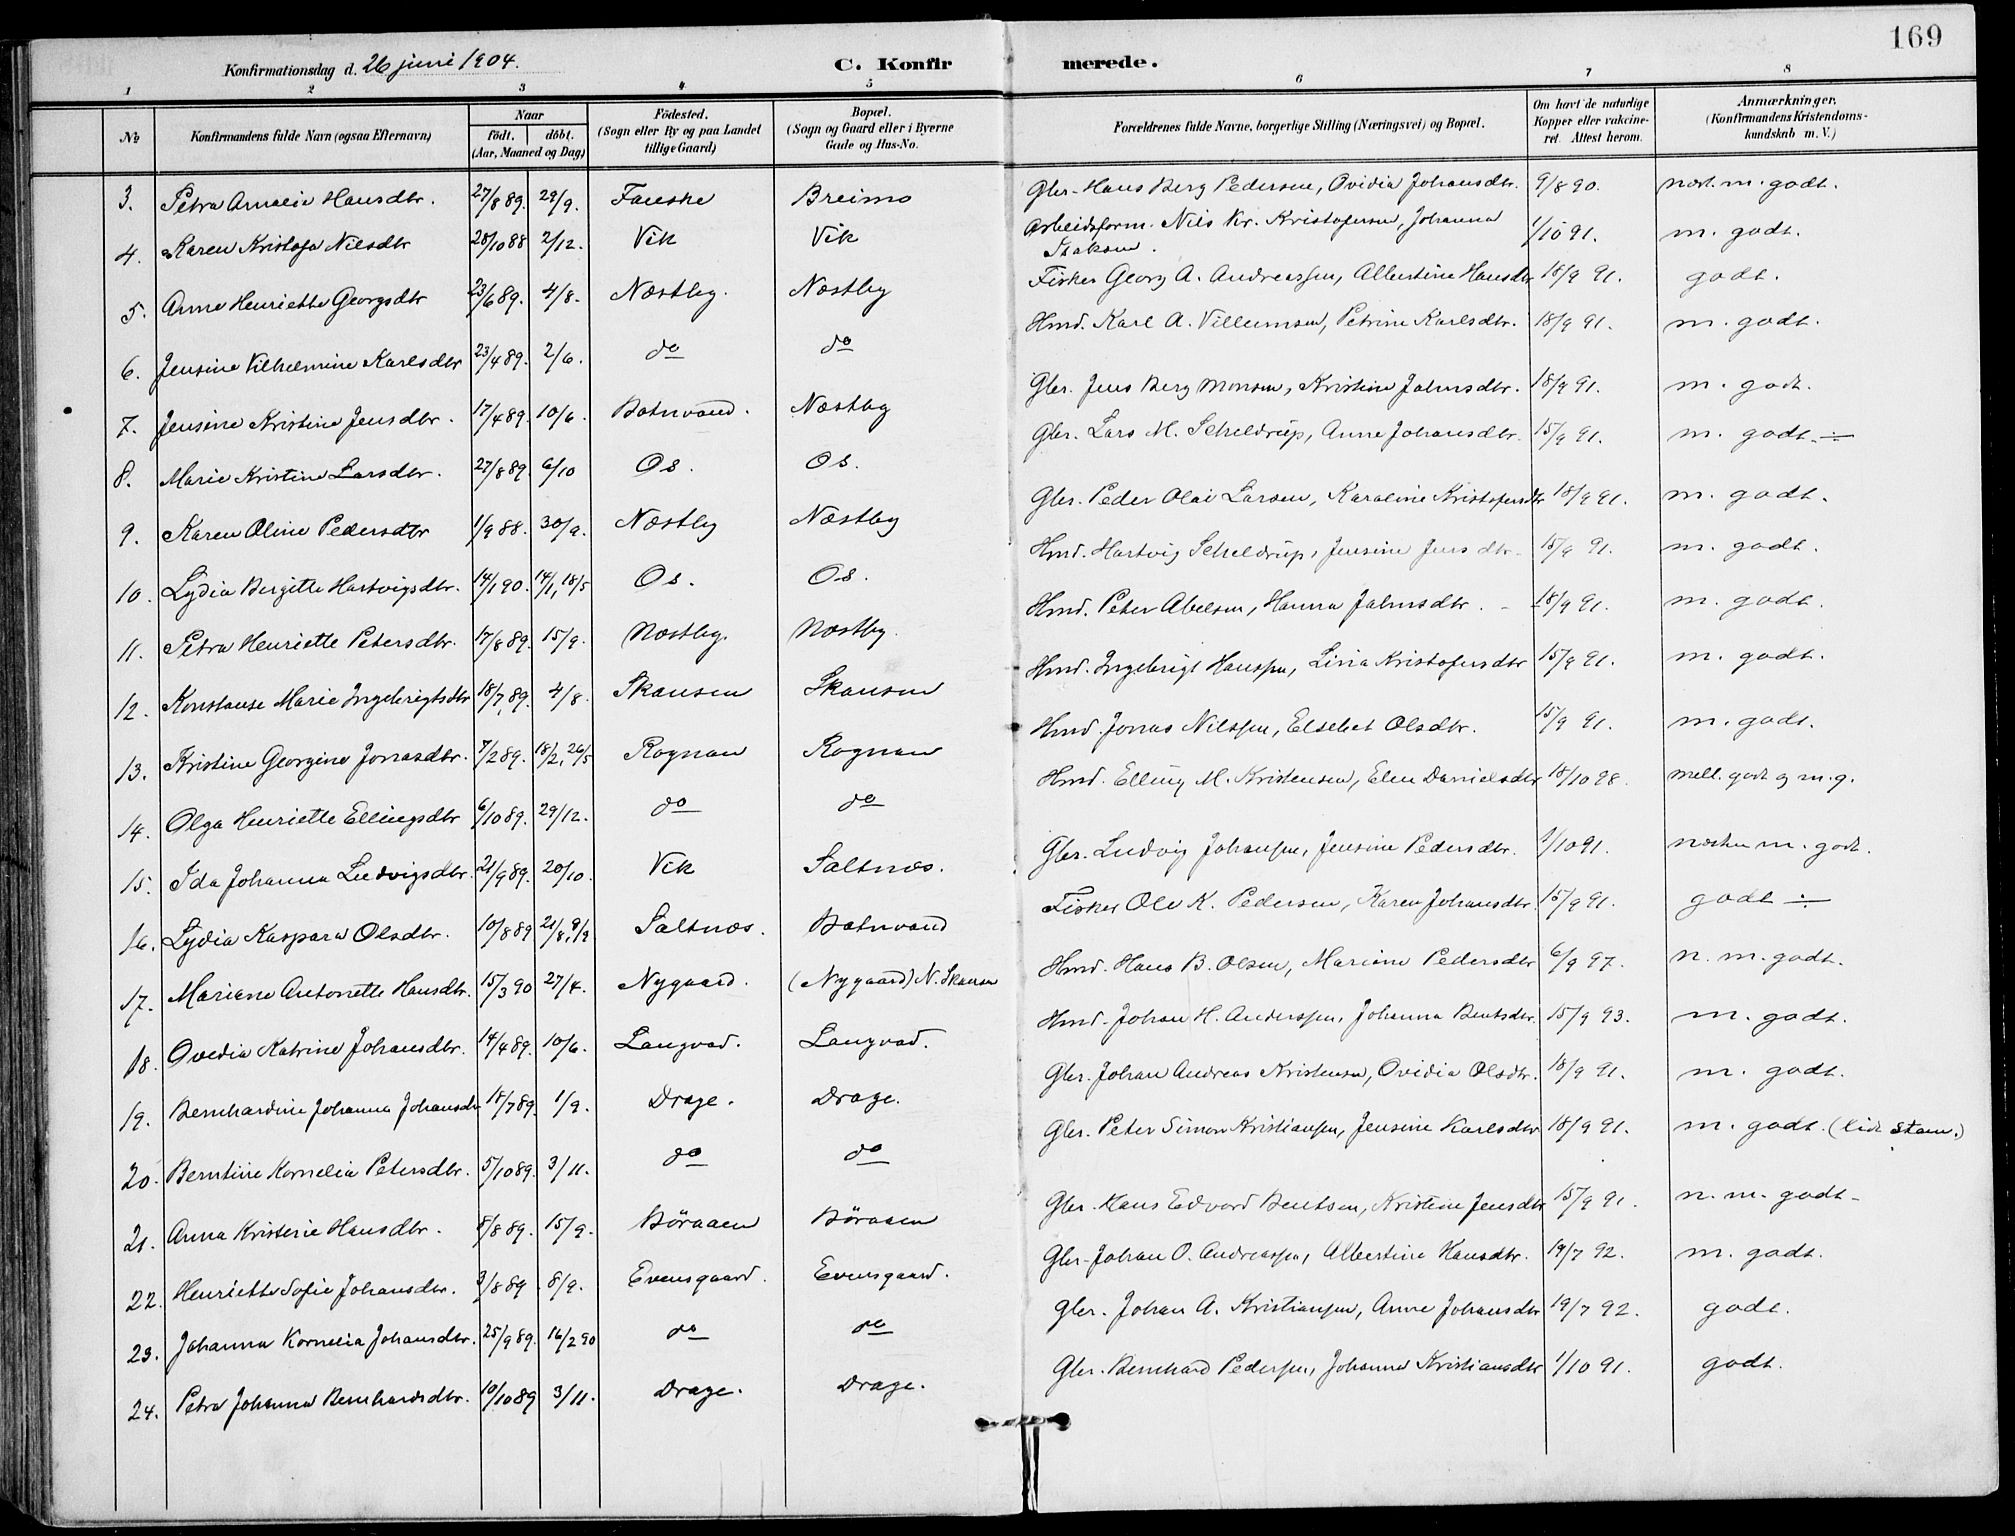 169
Konfirmationsdag d. 26 juni 1904.
C. Konfirmerede.
1 2 3 4 5 6 7 8
No Konfirmandens fulde Navn (ogsaa Efternavn) Naar født. døbt. (Aar, Maaned og Dag) Fødested. (Sogn eller By og paa Landet tillige Gaard) Bopæl. (Sogn og Gaard eller i Byerne Gade og Hus-No. Forældrenes fulde Navne, borgerlige Stilling (Næringsvei) og Bopæl. Om havt de naturlige Kopper eller vakcineret. Attest herom. Anmærkninger. (Konfirmandens Kristendomskundskab m. V.)
3. Petra Amalia Hansdtr. 27/8 89. 29/9. Fauske Breimo Gbr. Hans Berg Pedersen, Ovidia Johansdtr. 9/8 90. næst. m. godt.
4. Karen Kristofa Nilsdtr 28/10 88 2/12. Vik Vik Arbeidsform. Nils Kr. Kristofersen, Johanna Isaksen. 1/10 91. m. godt.
5. Anne Henriette Georgsdtr 23/6 89. 4/8. Næstby. Næstby Fisker Georg A. Andreassen, Albertine Hansdtr 18/9 91. godt.
6. Jensine Vilhelmine Karlsdtr 23/4 89. 2/6. do do Hmd. Karl A. Villumsen, Petrine Karlsdtr. 18/9 91. m. godt.
7. Jensine Kristine Jensdtr. 17/4 89. 10/6. Botnvand. Næstby Gbr. Jens Berg Monsen, Kristine Johnsdtr. 18/9 91. m. godt.
8. Marie Kristine Larsdtr. 27/8 89. 6/10 Os. Os. Gbr. Lars M. Scheldrup, Anne Johansdtr. 15/9 91. m. godt. ÷
9. Karen Oline Pedersdtr 1/9 88. 30/9. Næstby Næstby Gbr. Peder Olai Larsen, Karoline Kristofersdtr 18/9 91. m. godt.
10. Lydia Bergitte Hartvigsdtr. 14/1 90. 14/1, 18/5 Os. Os. Hmd. Hartvig Scheldrup, Jensine Jensdtr. 15/9 91. m. godt.
11. Petra Henriette Petersdtr. 17/8 89. 15/9. Næstby. Næstby. Hmd. Peter Abelsen, Hanna Johnsdtr. - 18/9 91. m. godt.
12. Konstanse Marie Ingebrigtsdtr 18/7 89. 4/8. Skansen Skansen Hmd. Ingebrigt Hanssen, Lina Kristofersdtr 15/9 91. m. godt.
13. Kristine Georgine Jonasdtr. 7/2 89. 18/2, 26/5 Rognan Rognan Hmd. Jonas Nilssen, Elsebet Olsdtr. 15/9 91. m. godt.
14. Olga Henriette Ellingsdtr 6/10 89. 29/12. do do Hmd. Elling M. Kristensen, Elen Danielsdtr 18/10 98. mell. godt og m. g.
15. Ida Johanna Ludvigsdtr. 21/9 89. 20/10. Vik Saltnæs. Gbr. Ludvig Johansen, Jensine Pedersdtr. 1/10 91. næsten m. godt.
16. Lydia Kaspara Olsdtr. 10/8 89 21/8, 9/9 Saltnæs. Botnvand Fisker Ole K. Pedersen, Karen Johansdtr. 15/9 91. godt ÷
17. Mariane Antonette Hansdtr. 15/3 90 27/4. Nygaard. (Nygaard) N. Skansen Hmd. Hans B. Olsen, Mariane Pedersdtr 6/9 97. n. m. godt.
18. Ovedia Katrine Johansdtr. 14/4 89. 10/6. Langvad. Langvad. Hmd. Johan H. Anderssen, Johanna Bentsdtr. 15/9 93. m. godt.
19. Bernhardine Johanna Johansdtr 18/7 89. 1/9. Drage. Drage. Gbr. Johan Andreas Kristensen, Ovidia Olsdtr. 18/9 91. m. godt.
20. Berntine Kornelia Petersdtr. 5/10 89. 3/11. do do Gbr. Peter Simon Kristiansen, Jensine Karlsdtr 18/9 91. m. godt. (lidt stam.)
21. Anna Kristine Hansdtr. 8/8 89. 15/9. Børaaen Børaaen Gbr. Hans Edvard Bentsen, Kristine Jensdtr 15/9 91. n. m. godt.
22. Henriette Sofie Johansdtr. 3/8 89. 8/9. Evensgaard. Evensgaard. Gbr. Johan O. Andreassen, Albertine Hansdtr. 19/7 92. m. godt.
23. Johanna Kornelia Johansdtr. 25/9 89. 16/2 90 do do Gbr. Johan A. Kristiansen, Anne Johansdtr 19/7 92. godt.
24. Petra Johanna Bernhardsdtr. 10/10 89 3/11. Drage. Drage. Gbr. Bernhard Pedersen, Johanna Kristiansdtr 1/10 91. godt.